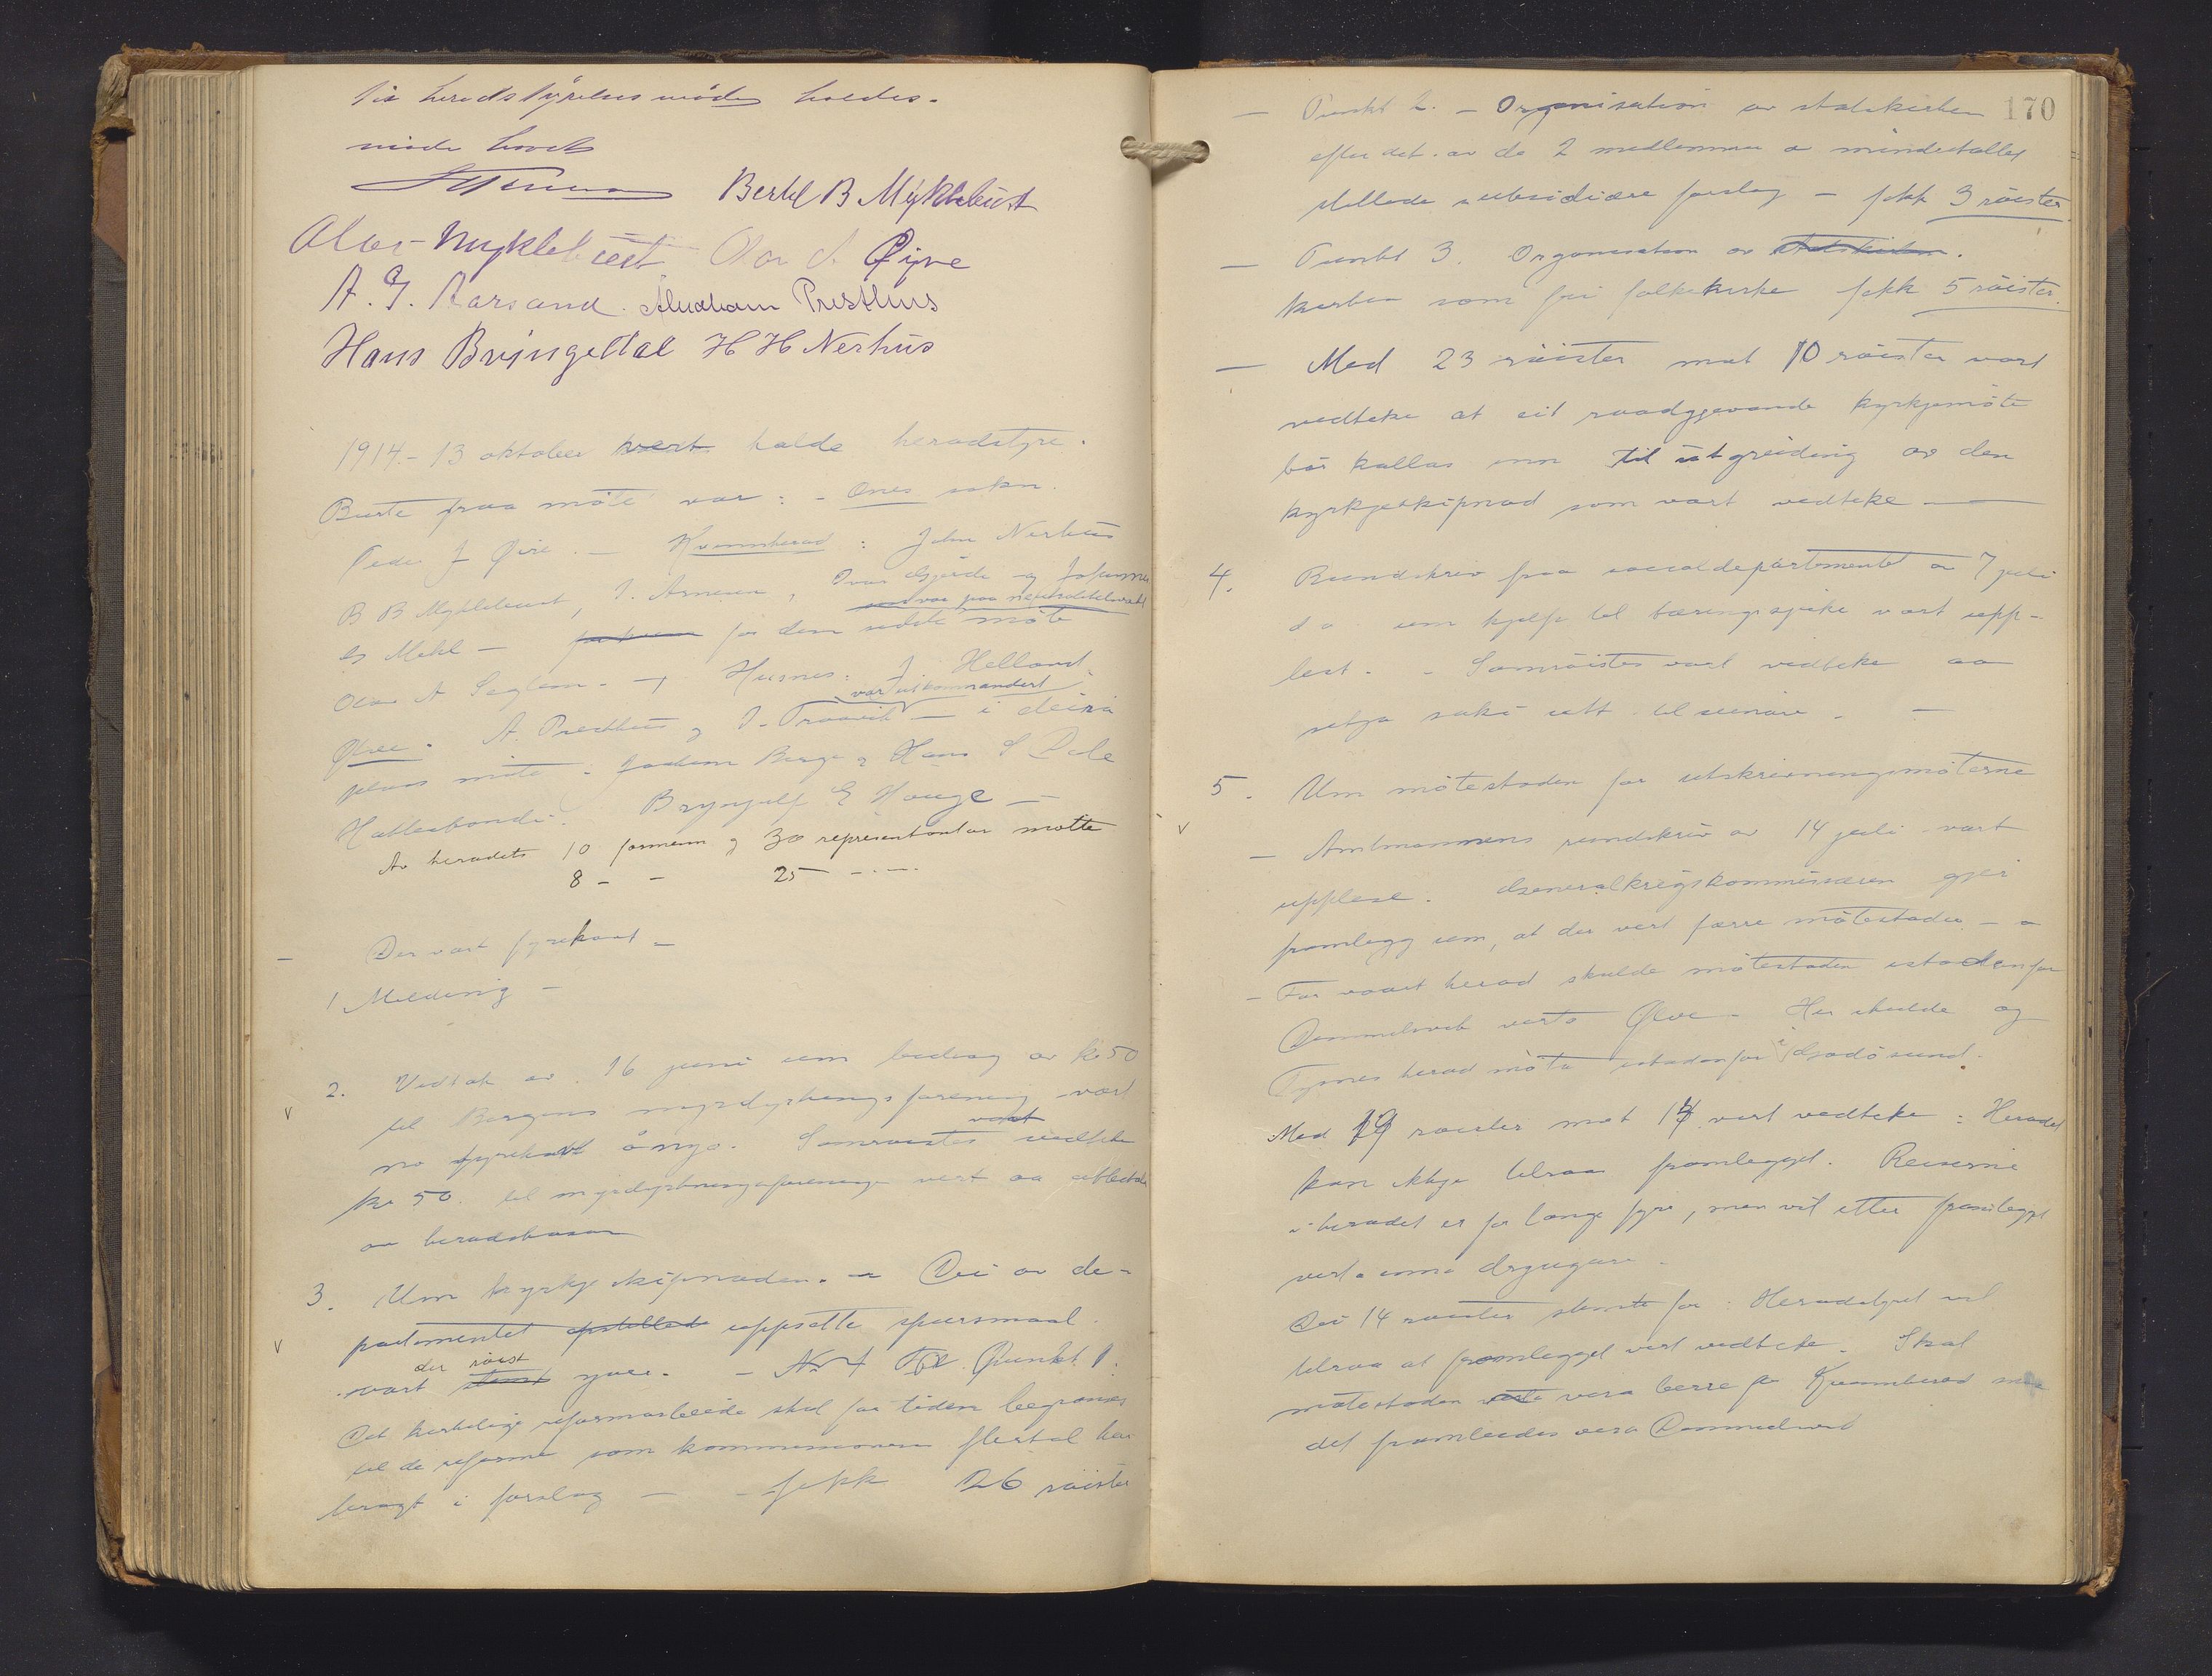 herredstyrelsesmøde holdes.
møde hævet
Bertel B Myklebust
Olav Myklebust Ola J. Øijre
A. G. Aarsand. Abraham Presthus
Hans Bringedal H H Nerhus
1914.- 13 oktober vart halde heradstyre.
Burte fraa møte var: - Ønes sokn.
Peder J Øire. - Kvinnherad: John Nerhus
B B Myklebust, J. Arnesen, Ivar Gjerde og Johannes
som var paa nøitralitetsvakt
Mehl - for dem sidste møte
Olav A Seglem. - Husnes: J Helland
var utkommandert
Ølve. A. Presthus og J. Traavik - i deira
plass møte: Joakim Berge og Hans S Dale
Hatlestrand: Brynjulf E Hauge -
Av heradets 10 formenn og 30 representantar møtte
8 - - 25 - . - .
- Der vart fyrehavt -
1 Melding -
2. Vedtak av 16 juni um bidrag av kr 50
til Bergens myrdyrkningsforening vart
no fyrehavt ånyo. Samrøistes vart vedteke
kr 50. til myrdyrkningsforeninga vert aa utbetale
av heradskassa
3. Um kyrkjeskipnaden. - Dei av de-
partementet opstillede uppsette spursmaal
der røist
vart stemt yver. - No 4 Punkt 1.
Det kirkelige reformarbeide skal for tiden begrænses
til de reformer som kommissionens flertal har
bragt i forslag - - fekk 26 røister
170
- Punkt 2. - Organisation av statskirken
efter det av de 2 medlemmer av mindretallet
stillede subsidiære forslag - fekk 3 røister.
- Punkt 3. Organisation av statskirken.
kirken som fri folkekirke fekk 5 røister.
- Med 23 røister mot 10 røister vart
vedteke at eit raadgjevande kyrkjemøte
bør kallas inn til utgreiding av den
kyrkjeskipnad som vart vedteke -
4. Rundskriv fraa socialdepartementet av 7 juli
d a um hjelp til tæringssjuke vart upp-
lest. - Samrøistes vart vedteke aa
setja saki utt til seinare. -
5. Um møtestaden for utskrivningsmøterne
- Amtmannens rundskriv av 14 juli vart
upplese. Generalkrigskommissæren gjer
framlegg um, at der vert færre møtestader - o
- For vaart herad skulde møtestaden istadenfor
Dimmelsvik verta Ølve. Her skulde og
Tysnes herad møta istadenfor i Godøsund.
Med 19 røister mot 14 vart vedteke: Heradet
kan ikkje tilraa framlegget. Reiserne
i heradet er for lange fyrr, men vil etter framlegget
verta enno drygare.
Dei 14 røister stemte for: Heradstyret vil
tilraa at framlegget vert vedteke. Skal
møtestaden verta vera berre for Kvinnherad maa
det framleides vera Dimmelsvik